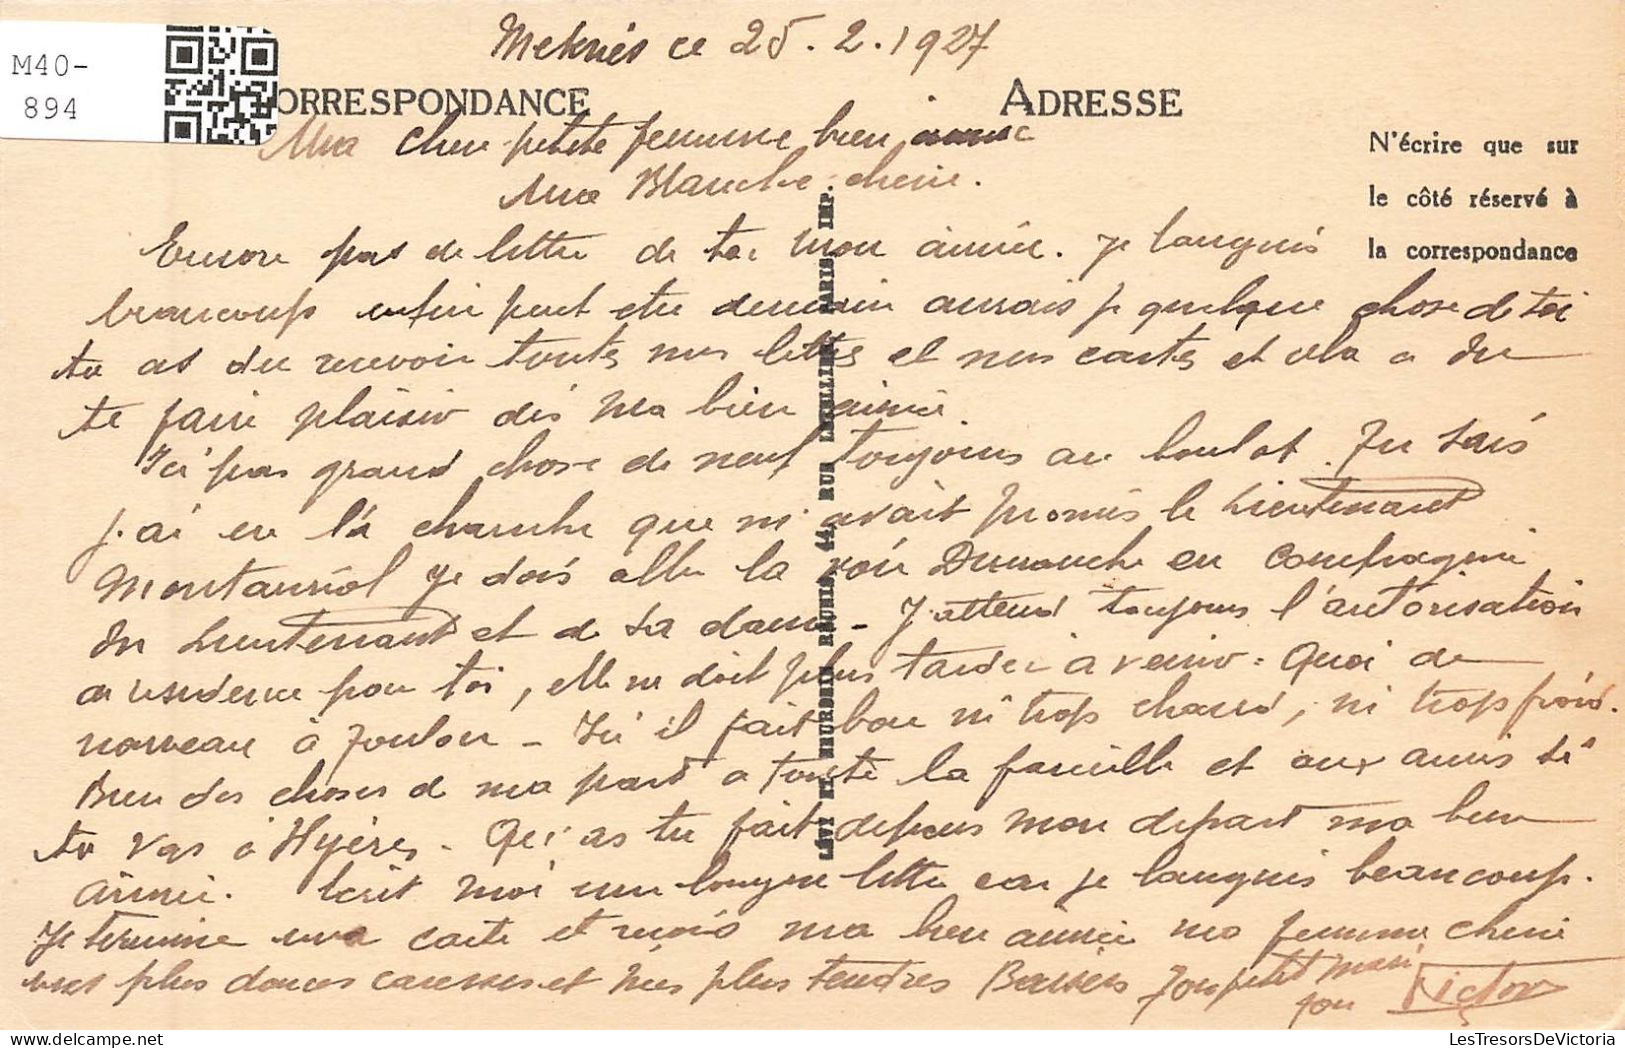 M40-
894
Meknès ce 25.2.1927
CORRESPONDANCE
ADRESSE
N'écrire que sur
le côté réservé à
la correspondance
LÉVY ET NEURDEIN RÉUNIS, 44, RUE LETELLIER, PARIS. IMP.
Ma chère petite femme bien aimée
Ma Blanche chérie.
Encore pas de lettre de toi mon aimée. Je languis
beaucoup enfin peut etre demain aurais je quelque chose de toi
tu as du recevoir toutes mes lettres et mes cartes et cela a du
te faire plaisir dis ma bien aimée
Ici pas grand chose de neuf toujours au boulot. Tu sais
j'ai eu la chambre que m'avait promis le Lieutenant
Montauriol je dois aller la voir Dimanche en compagnie
du Lieutenant et de sa dame - J'attend toujours l'autorisation
de residence pour toi, elle ne doit plus tarder a venir. Quoi de
nouveau à Toulon - Ici il fait bon ni trop chaud, ni trop froid.
Bien des choses de ma part a toute la famille et aux amis si
tu vas à Hyères. Qu'as tu fait depuis mon depart ma bien
aimée. Ecrit moi une longue lettre car je languis beaucoup.
Je termine ma carte et reçois ma bien aimée ma femme cherie
mes plus douces caresses et mes plus tendres Baisers Ton petit mari
ton Victor
LesTresorsDeVictoria